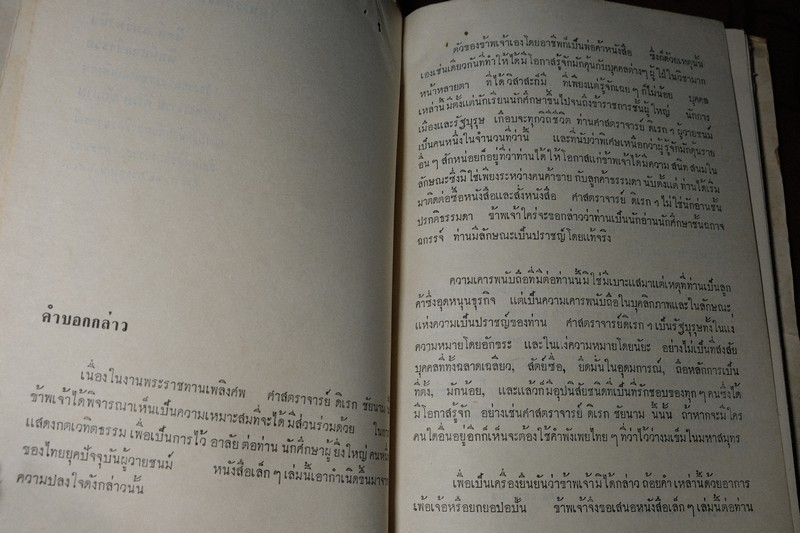 คำบอกกล่าว
เนื่องในงานพระราชทานเพลิงศพ ศาสตราจารย์ ดิเรก ชัยนาม
ข้าพเจ้าได้พิจารณาเห็นเป็นความเหมาะสมที่จะได้ มีส่วนร่วมด้วย ในการ
แสดงกตเวทิตธรรม เพื่อเป็นการไว้ อาลัย ต่อท่าน นักศึกษาผู้ ยิ่งใหญ่ คนหนึ่ง
ของไทยยุคปัจจุบันผู้วายชนม์ หนังสือเล็ก ๆ เล่มนี้เอากำเนิดขึ้นมาจาก
ความปลงใจดังกล่าวนั้น
ตัวของข้าพเจ้าเองโดยอาชีพก็เป็นพ่อค้าหนังสือ ซึ่งก็ด้วยเหตุนั้น
เองเช่นเดียวกันที่ทำให้ได้มีโอกาสรู้จักมักคุ้นกับบุคคลต่างๆ ผู้ใฝ่ในวิชามาก
หน้าหลายตา ที่ได้วิสาสะก็มี ที่เพียงแต่รู้จักเฉย ๆ ก็ไม่น้อย บุคคล
เหล่านี้มีตั้งแต่นักเรียนนักศึกษาขึ้นไปจนถึงข้าราชการชั้นผู้ใหญ่ นักการ
เมืองและรัฐบุรุษ เกือบจะทุกวิถีชีวิต ท่านศาสตราจารย์ ดิเรก ฯ ผู้วายชนม์
เป็นคนหนึ่งในจำนวนที่ว่านี้ และที่นับว่าพิเศษเหนือกว่าผู้รู้จักมักคุ้นราย
อื่น ๆ สักหน่อยก็อยู่ที่ว่าท่านได้ให้โอกาสแก่ข้าพเจ้าได้มีความ สนิท สนมใน
ลักษณะซึ่งมิใช่เพียงระหว่างคนค้าขาย กับลูกค้าธรรมดา นับตั้งแต่ ท่านได้เริ่ม
มาติดต่อซื้อหนังสือและสั่งหนังสือ ศาสตราจารย์ ดิเรก ฯ ไม่ใช่นักอ่านชั้น
ปรกติธรรมดา ข้าพเจ้าใคร่จะขอกล่าวว่าท่านเป็นนักอ่านนักศึกษาชั้นฉกาจ
ฉกรรจ์ ท่านมีลักษณะเป็นปราชญ์โดยแท้จริง
ความเคารพนับถือที่มีต่อท่านนี้มิใช่มีเบาะแสมาแต่เหตุที่ท่านเป็นลูก
ค้าซึ่งอุดหนุนธุรกิจ แต่เป็นความเคารพนับถือในบุคลิกภาพและในลักษณะ
แห่งความเป็นปราชญ์ของท่าน ศาสตราจารย์ดิเรก ฯ เป็นรัฐบุรุษทั้งในแง่
ความหมายโดยอักขระ และในแง่ความหมายโดยนัยะ อย่างไม่เป็นที่สงสัย
บุคคลที่ทั้งฉลาดเฉลียว, สัตย์ซื่อ, ยึดมั่นในอุดมการณ์, ถือหลักการเป็น
ที่ตั้ง, มักน้อย, และแล้วก็มีอุปนิสัยชนิดที่เป็นที่รักชอบของทุก ๆ คนซึ่งได้
มีโอกาสรู้จัก อย่างเช่นศาสตราจารย์ ดิเรก ชัยนาม นี้นั้น ถ้าหากจะมีใคร
คนใดอื่นอยู่อีกก็เห็นจะต้องใช้คำพังเพยไทย ๆ ที่ว่าไว้ว่างมเข็มในมหาสมุทร
เพื่อเป็นเครื่องยืนยันว่าข้าพเจ้ามิได้กล่าว ถ้อยคำ เหล่านี้ด้วยอาการ
เพ้อเจ้อหรือยกยอปอปั้น ข้าพเจ้าจึงขอเสนอหนังสือเล็ก ๆ เล่มนี้ต่อท่าน